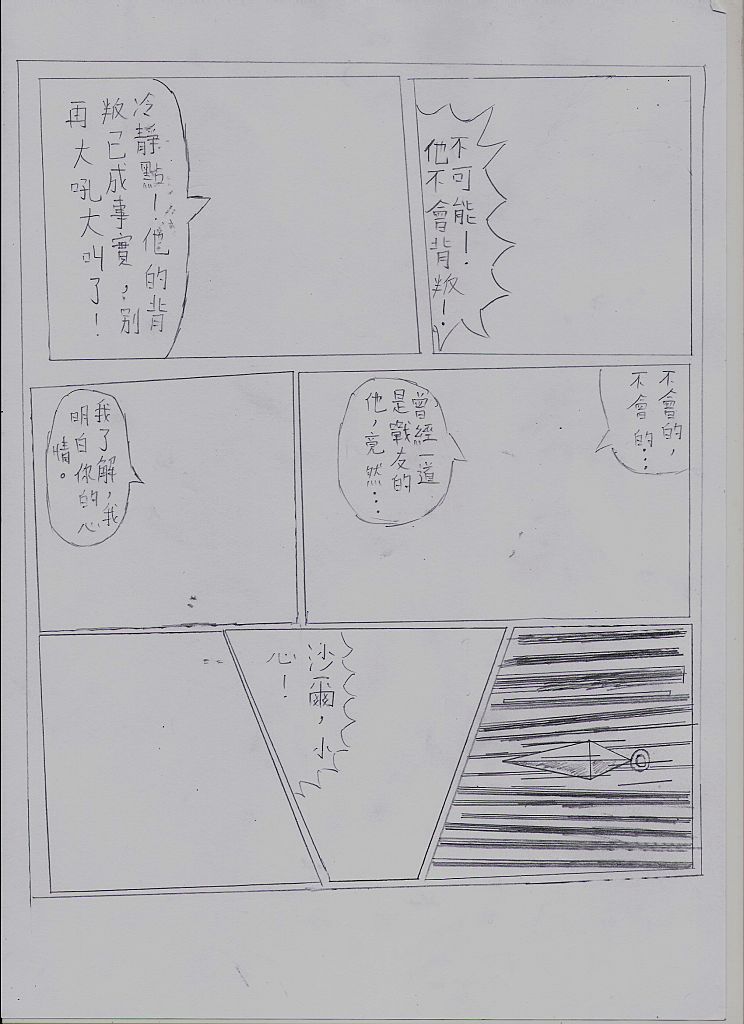 不可能！
他不會背叛！
冷靜點！他的背
叛已成事實，别
再大吼大叫了！
不會的，
不會的…
曾經一道
是戰友的
他，竟然…
我了解，我
明白你的心
情。
沙爾，小
心！